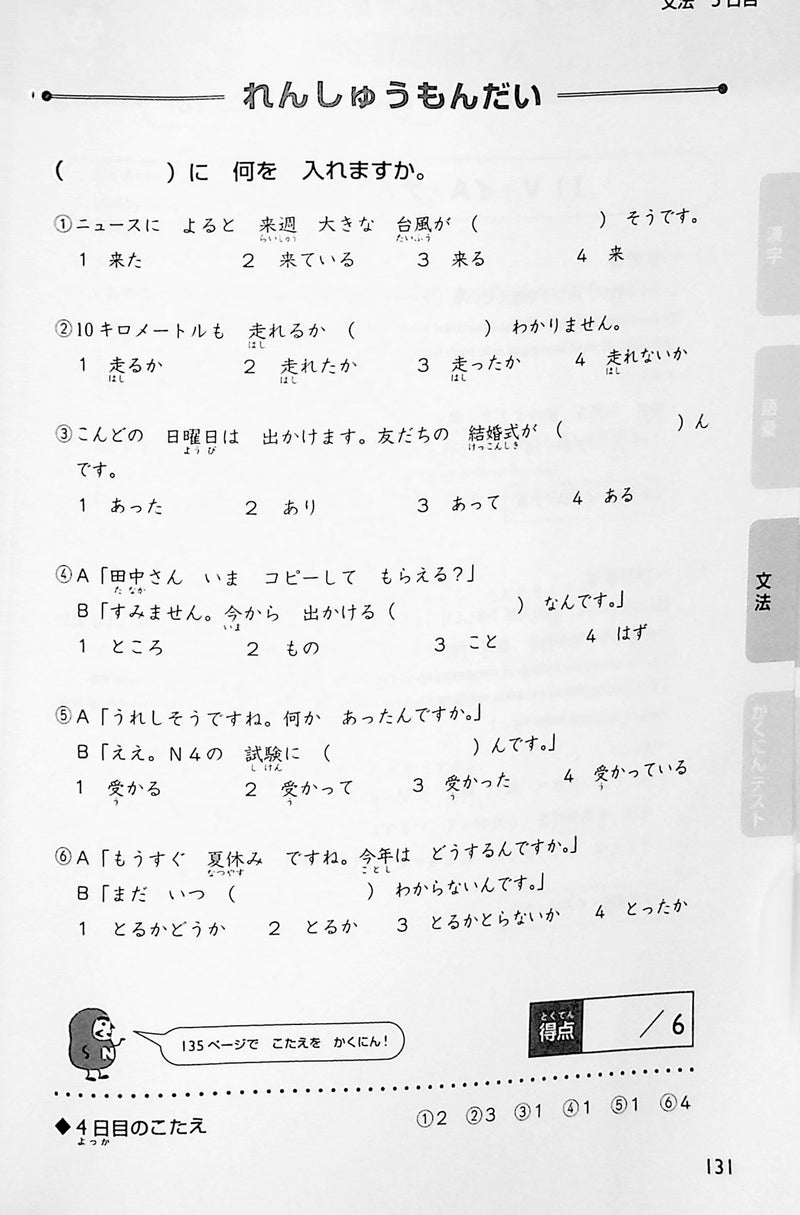 文法 5日目
れんしゅうもんだい
(　　　)に 何を 入れますか。
①ニュースに よると 来週 大きな 台風が (　　　) そうです。
らいしゅう たいふう
1 来た 2 来ている 3 来る 4 来
②10キロメートルも 走れるか (　　　) わかりません。
はし
1 走るか 2 走れたか 3 走ったか 4 走れないか
はし はし はし はし
③こんどの 日曜日は 出かけます。友だちの 結婚式が (　　　)ん
ようび けっこんしき
です。
1 あった 2 あり 3 あって 4 ある
④A「田中さん いま コピーして もらえる?」
たなか
B「すみません。今から 出かける(　　　) なんです。」
いま
1 ところ 2 もの 3 こと 4 はず
⑤A「うれしそうですね。何か あったんですか。」
B「ええ。N4の 試験に (　　　)んです。」
しけん
1 受かる 2 受かって 3 受かった 4 受かっている
う う う う
⑥A「もうすぐ 夏休み ですね。今年は どうするんですか。」
なつやす ことし
B「まだ いつ (　　　) わからないんです。」
1 とるかどうか 2 とるか 3 とるかとらないか 4 とったか
漢字
語彙
文法
かくにんテスト
N
135ページで こたえを かくにん!
とくてん
得点 /6
◆4日目のこたえ ①2 ②3 ③1 ④1 ⑤1 ⑥4
よっか
131